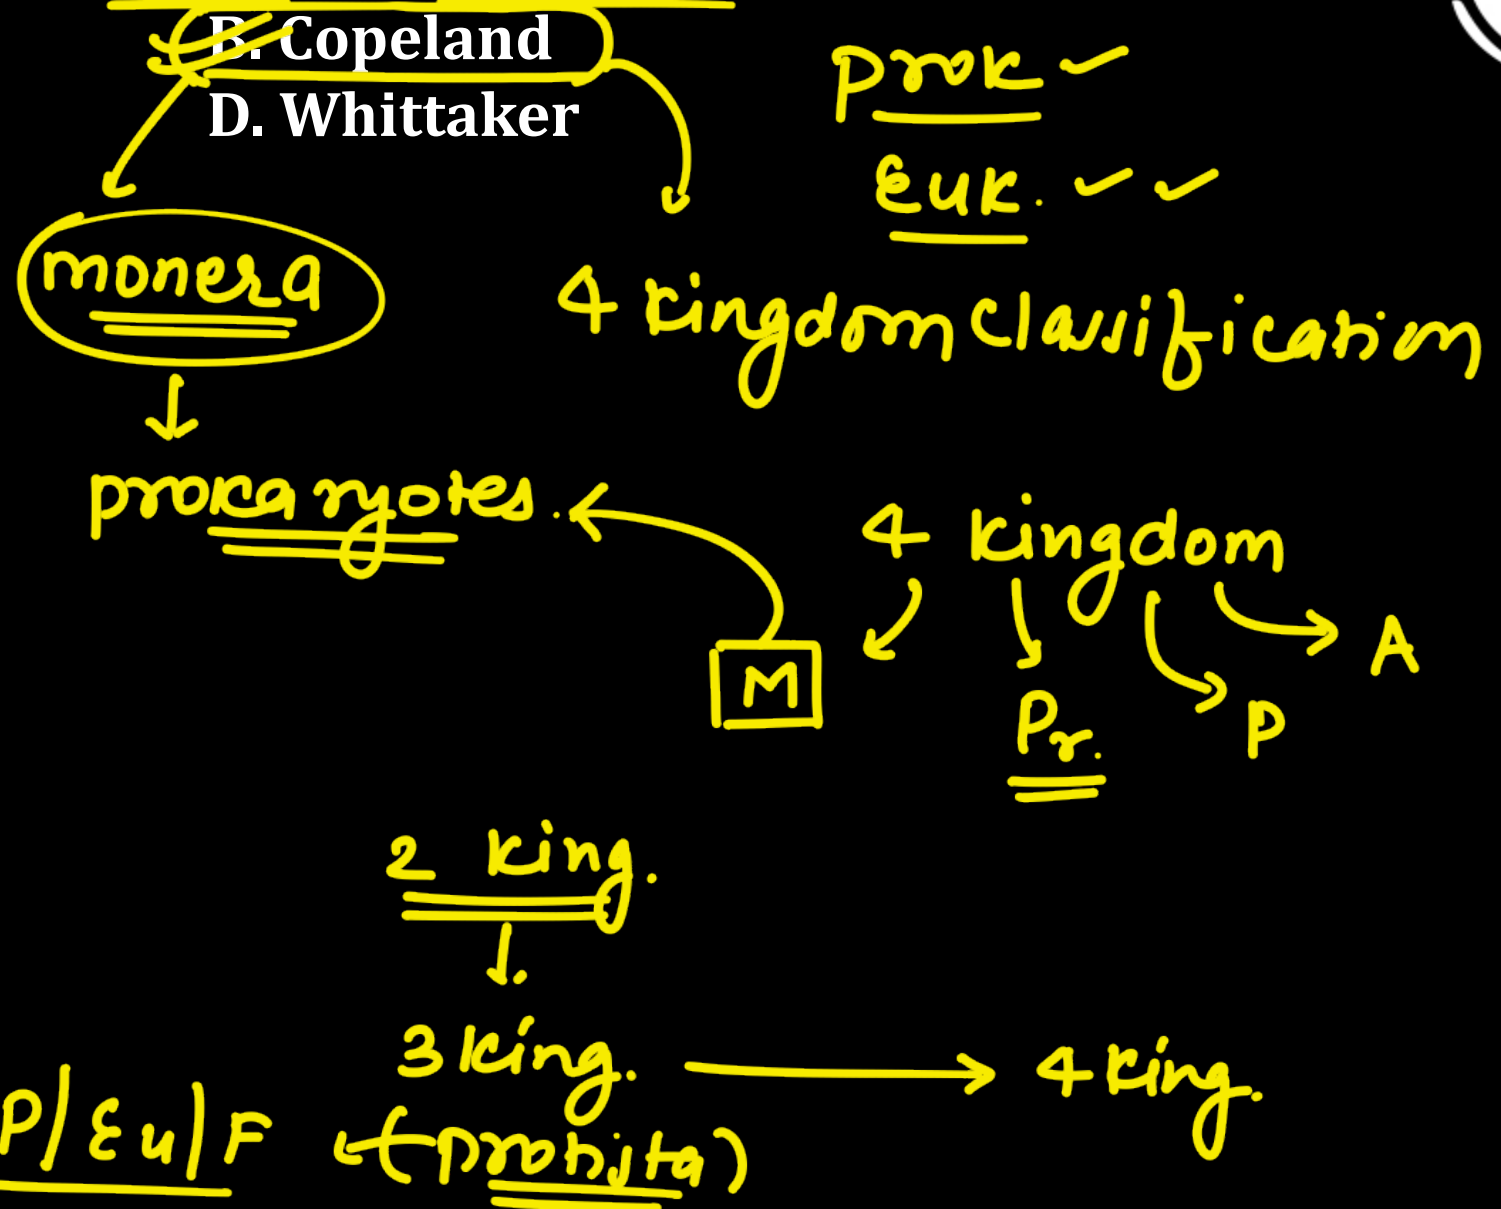 B. Copeland
D. Whittaker
prok
Euk.
monera
4 kingdom classification
prokaryotes.
4 kingdom
M
Pr.
P
A
2 king.
3 king.
4 king.
P/Eu/F
(protista)